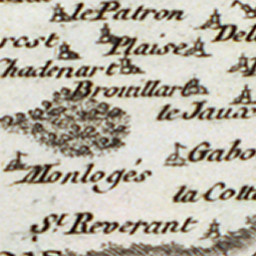 le Patron
Plaise
Chadenart
Brouillart
le Jaux
Gabo
Monlogés
la Cotta
St. Reverant